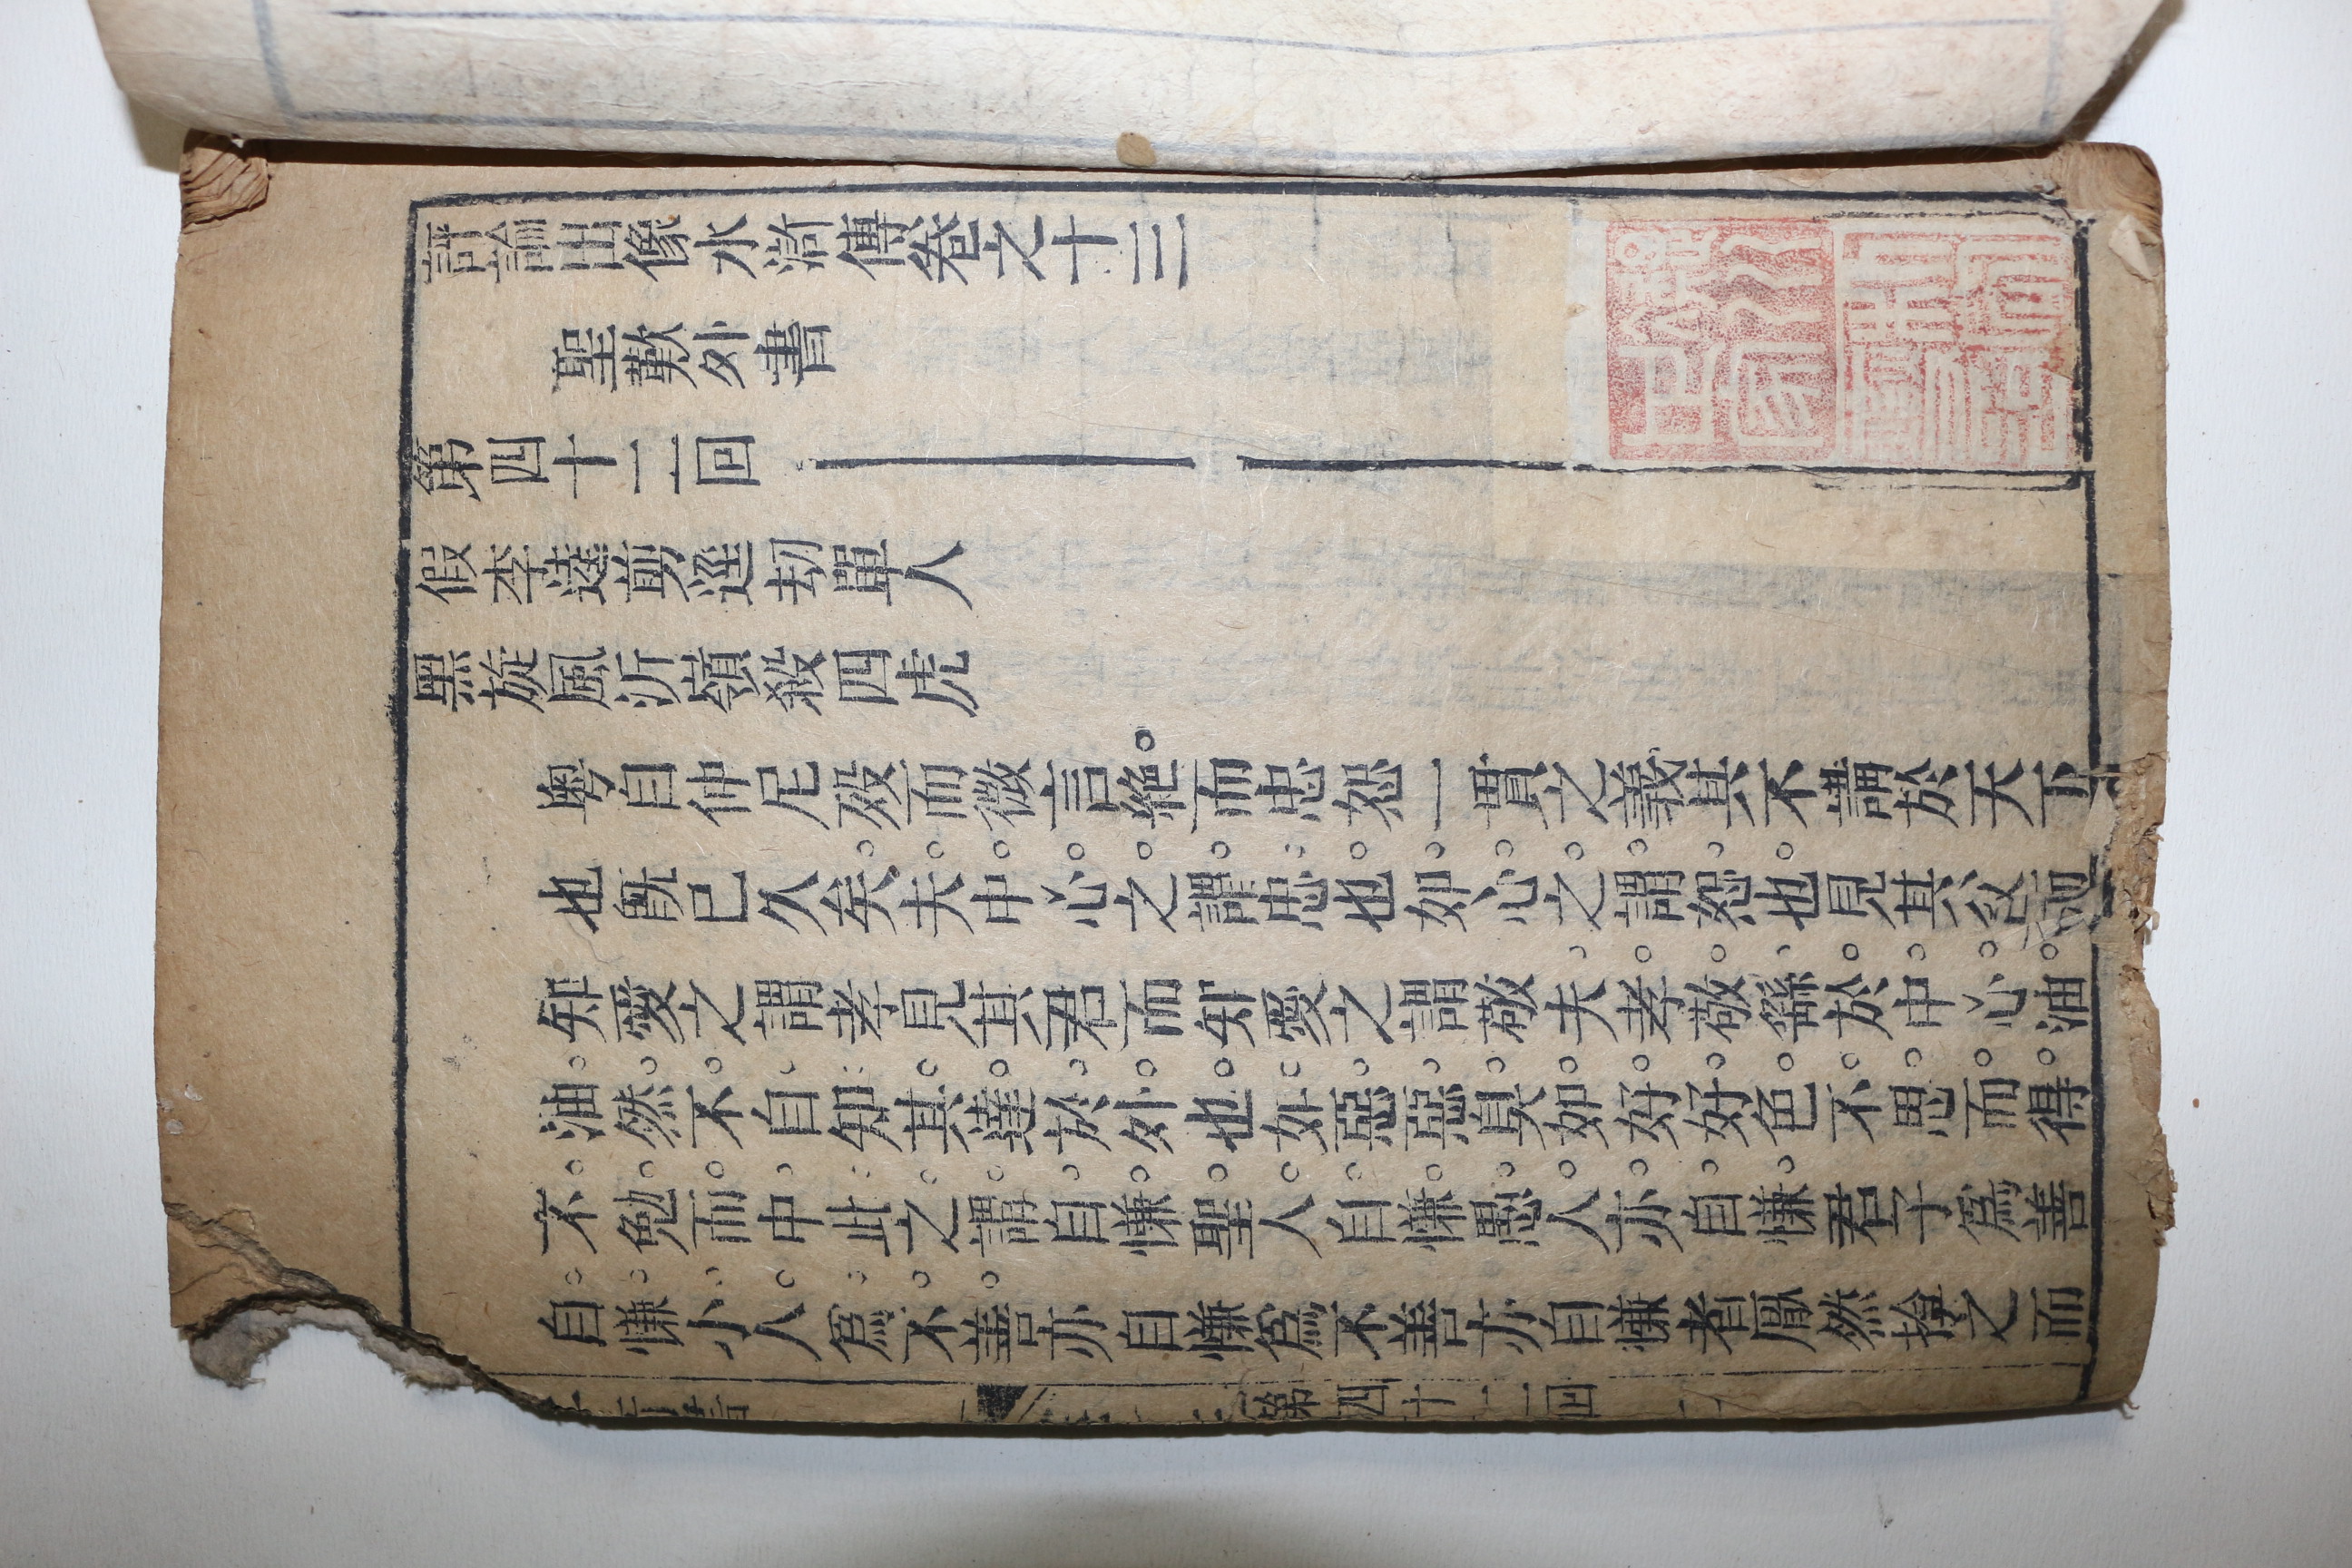 評論出像水滸傳卷之十三
聖歎外書
第四十二回
假李逵剪逕劫單人
黑旋風沂嶺殺四虎
粵自仲尼歿而微言絕而忠恕一貫之義其不講於天下
也旣已久矣夫中心之謂忠也如心之謂恕也見其父而
知愛之謂孝見其君而知愛之謂敬夫孝敬繇於中心油
油然不自知其達於外也如惡惡臭如好好色不思而得
不勉而中此之謂自慊聖人自慊愚人亦自慊君子爲善
自慊小人爲不善亦自慊爲不善亦自慊者厭然揜之而
第四十二回